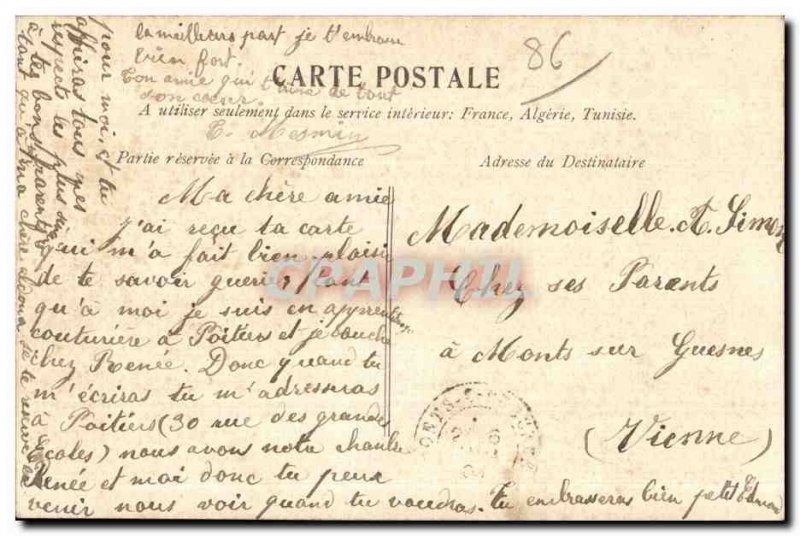 la meilleure part je t'embrasse
bien fort.
Ton amie qui t'aime de tout
son cœur.
E. Mesmin
86
CARTE POSTALE
A utiliser seulement dans le service intérieur: France, Algérie, Tunisie.
Partie réservée à la Correspondance
Adresse du Destinataire
Ma chère amie
J'ai reçu ta carte
qui m'a fait bien plaisir
de te savoir guerie, quant
qu'à moi je suis en apprentissage
couturière à Poitiers et je couche
chez Renée. Donc quand tu
m'écriras tu m'adresseras
à Poitiers (30 rue des grandes
Ecoles) nous avons notre chambre
Renée et moi donc tu peux
venir nous voir quand tu voudras. tu embrasseras bien petit Edmond
pour moi, et tu
offriras tous mes
respects les plus
à tes bons parents
tant qu'à ma chère
Mademoiselle. A. Simon
Chez ses Parents
à Monts sur Guesnes
(Vienne)
CPAPHIL